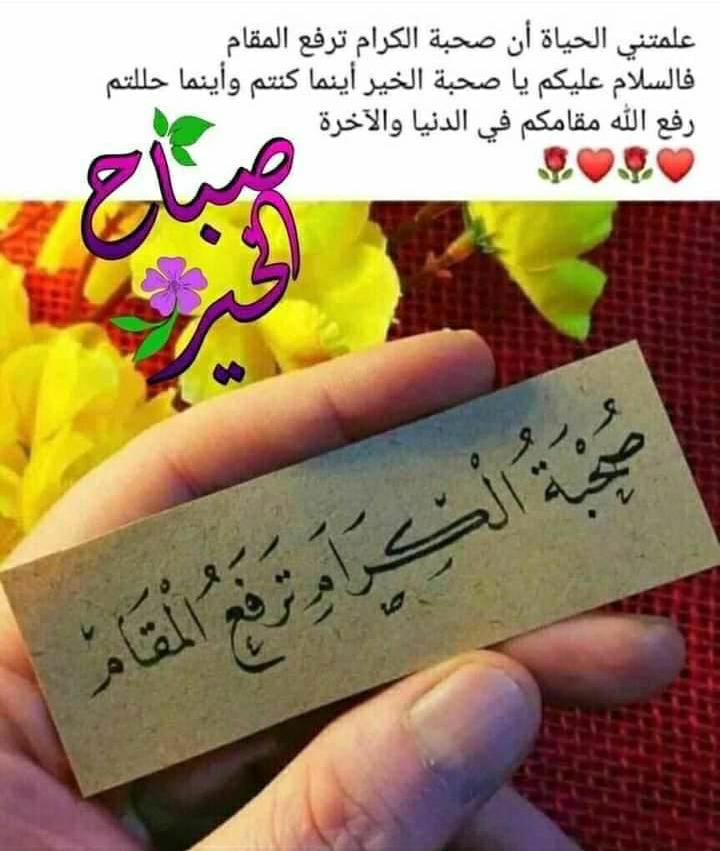 علمتني الحياة أن صحبة الكرام ترفع المقام
فالسلام عليكم يا صحبة الخير أينما كنتم وأينما حللتم
رفع الله مقامكم في الدنيا والآخرة
♥️🌹♥️🌹
صباح
الخير
صُحْبَةُ الْكِرَامِ تَرْفَعُ الْمَقَامَ